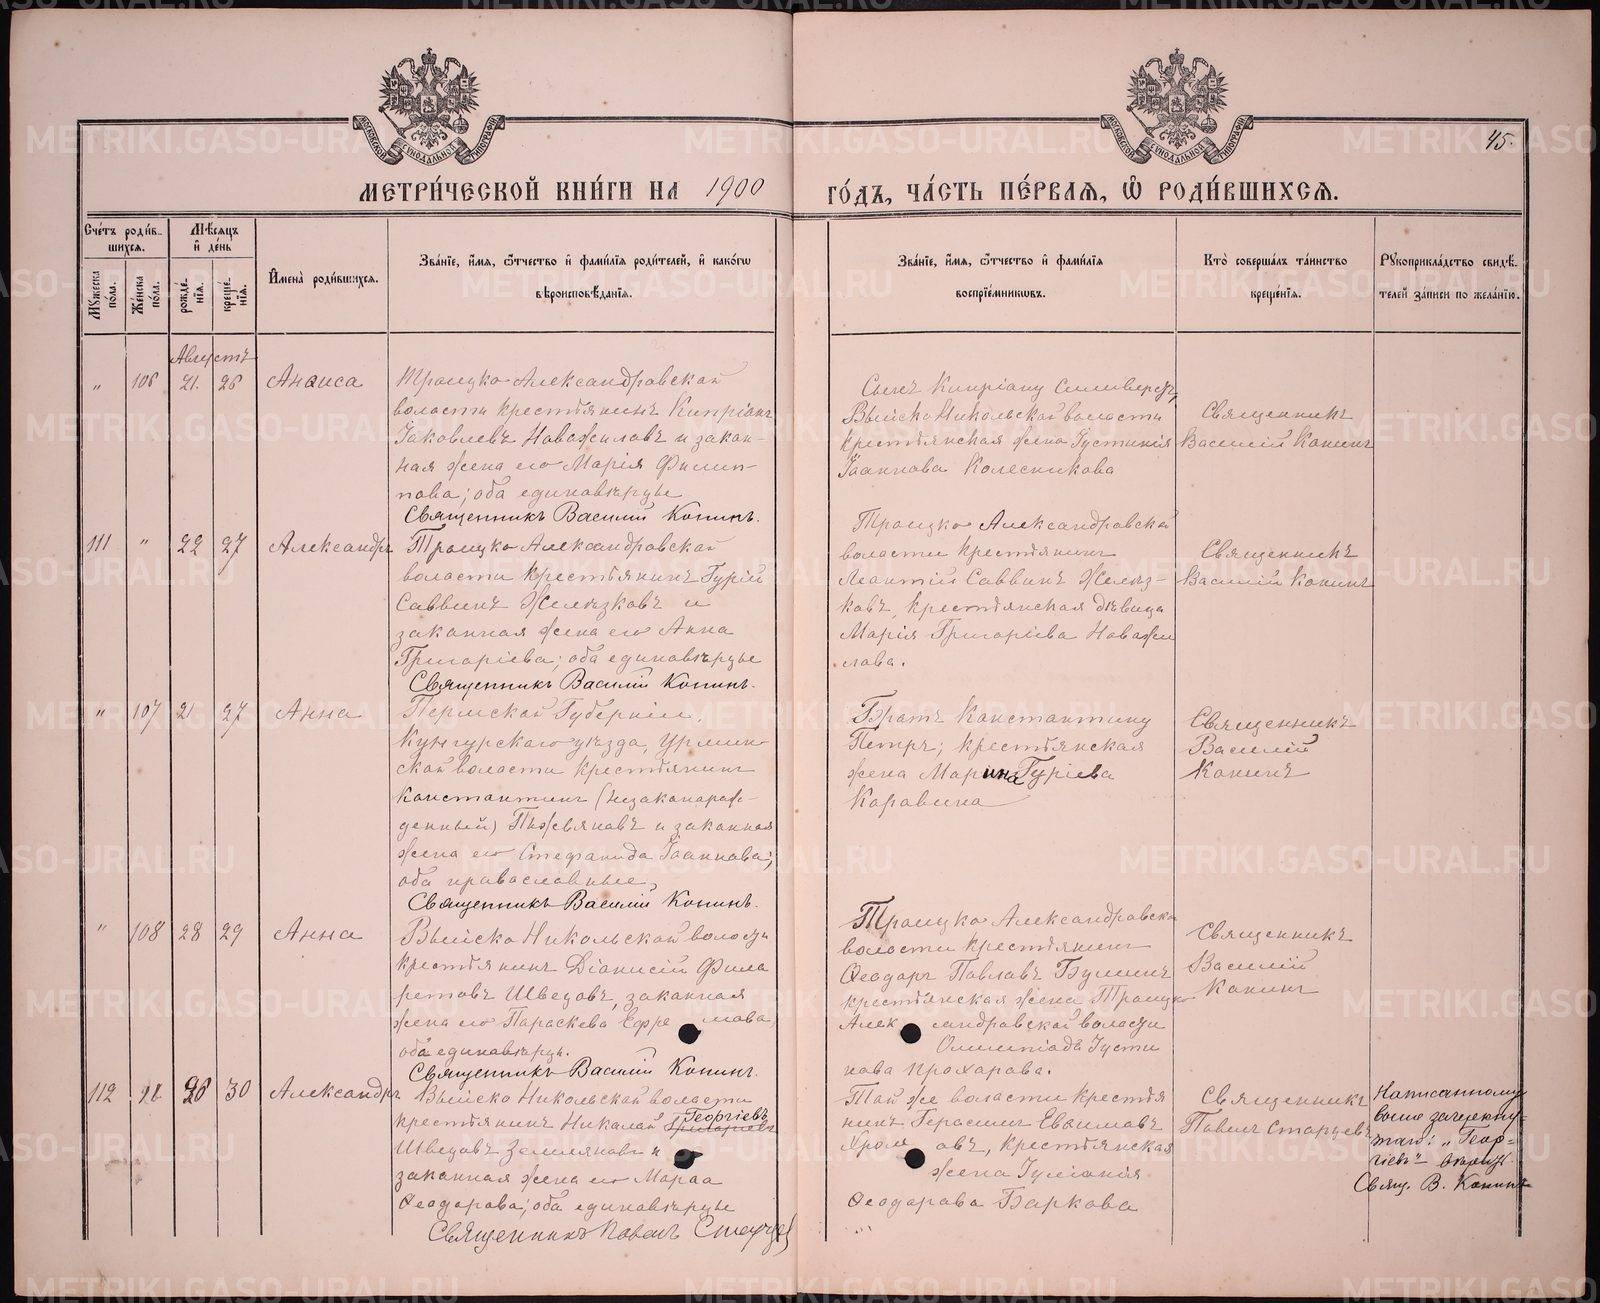 45.
МЕТРИ́ЧЕСКОЙ КНИ́ГИ НА 1900 ГО́ДЪ, ЧА́СТЬ ПЕ́РВАЯ, Ѡ РОДИ́ВШИХСЯ.
МОСКОВСКОЙ СѴНОДАЛЬНОЙ ТИПОГРАФІИ
МОСКОВСКОЙ СѴНОДАЛЬНОЙ ТИПОГРАФІИ
Сче́тъ роди́в-
шихся.
Мꙋжеска по́ла.
Же́нска по́ла.
Мѣ́сяцъ
и҆ де́нь
рожде́-
нїѧ.
креще́-
нїѧ.
И҆мена̀ роди́вшихся.
Зва́нїе, и҆́мя, ѻ҆́тчество и҆ фами́лїя роди́телей, и҆ како́гѡ
вѣроисповѣ́данїя.
Зва́нїе, и҆́мя, ѻ҆́тчество и҆ фами́лїя
воспрїе́мникѡвъ.
Кто̀ соверша́лъ та́инство
креще́нїя.
Рꙋкоприкла́дство свидѣ́-
телей за́писи по жела́нїю.
Августъ
„ 106 21. 26 Анаиса
Троицко Александровской
волости крестьянинъ Кипріанъ
Іаковлевъ Новожиловъ и закон-
ная жена его Марія Филип-
пова; оба единовѣрцы
Священникъ Василій Конинъ.
Сынъ Кипріану Силиверстъ,
Выйско Никольской волости
крестьянская жена Іустинія
Іоаннова Колесникова
Священникъ
Василій Конинъ
111 „ 22 27 Александръ
Троицко Александровской
волости крестьянинъ Гурій
Саввинъ Желѣзковъ и
законная жена его Анна
Григоріева; оба единовѣрцы
Священникъ Василій Конинъ.
Троицко Александровской
волости крестьянинъ
Леонтій Саввинъ Желѣз-
ковъ, крестьянская дѣвица
Марія Григоріева Новожи
лова.
Священникъ
Василій Конинъ
„ 107 21 27 Анна
Пермской Губерніи,
Кунгурскаго уѣзда, Урмин-
ской волости крестьянинъ
Константинъ (незаконорож-
денный) Пожвяковъ и законная
жена его Стефанида Іоаннова;
оба православные,
Священникъ Василій Конинъ.
Братъ Константину
Петръ; крестьянская
жена Марина Гуріева
Коровина
Священникъ
Василій
Конинъ
„ 108 28 29 Анна
Выйско Никольской волости
крестьянинъ Діонисій Фила
ретовъ Швецовъ, законная
жена его Параскева Ефре мова,
оба единовѣрцы.
Священникъ Василій Конинъ.
Троицко Александровской
волости крестьянинъ
Ѳеодоръ Павловъ Бушинъ
крестьянская жена Троицко
Алек сандровской волости
Олимпіада Іусти
нова Прохорова.
Священникъ
Василій
Конинъ
112 28 30 Александръ
Выйско Никольской волости
крестьянинъ Николай Григоріевъ Георгіевъ
Швецовъ Земляновъ и
законная жена его Мароа
Ѳеодорова; оба единовѣрцы
Священникъ Павелъ Старцевъ
Той же волости крестья
нинъ Герасимъ Евѳимовъ
Хром овъ, крестьянская
жена Іуліанія
Ѳеодорова Баркова
Священникъ
Павелъ Старцевъ
Написанному
выше зачеркну-
тому: „Геор-
гіевъ"
Свящ. В. Конинъ
METRIKI.GASO-URAL.RU